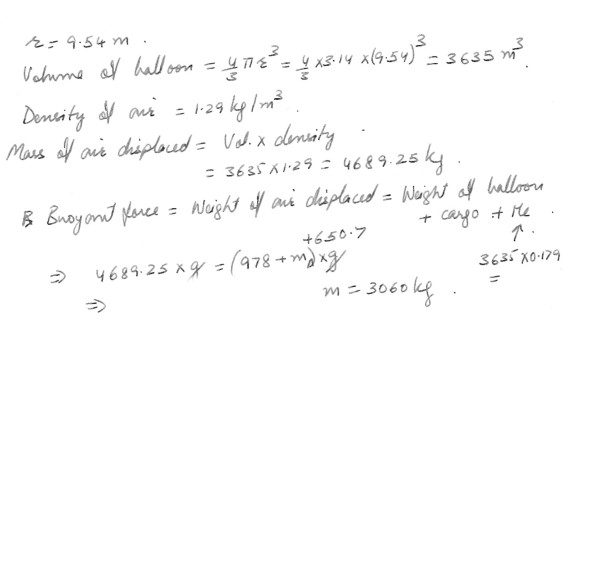 r = 9.54 m .
Volume of balloon = 4/3 π r³ = 4/3 × 3.14 × (9.54)³ = 3635 m³.
Density of air = 1.29 kg/m³ .
Mass of air displaced = Vol. × density .
= 3635 × 1.29 = 4689.25 kg .
B Buoyant force = Weight of air displaced = Weight of balloon
+ cargo + He .
↑ .
3635 × 0.179
=
+650.7
⇒ 4689.25 × g = (978 + m) × g
⇒ m = 3060 kg .